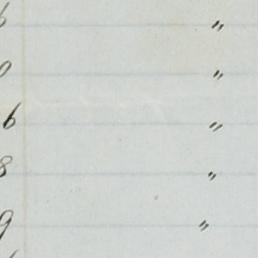 6 "
0 "
6 "
8 "
9 "